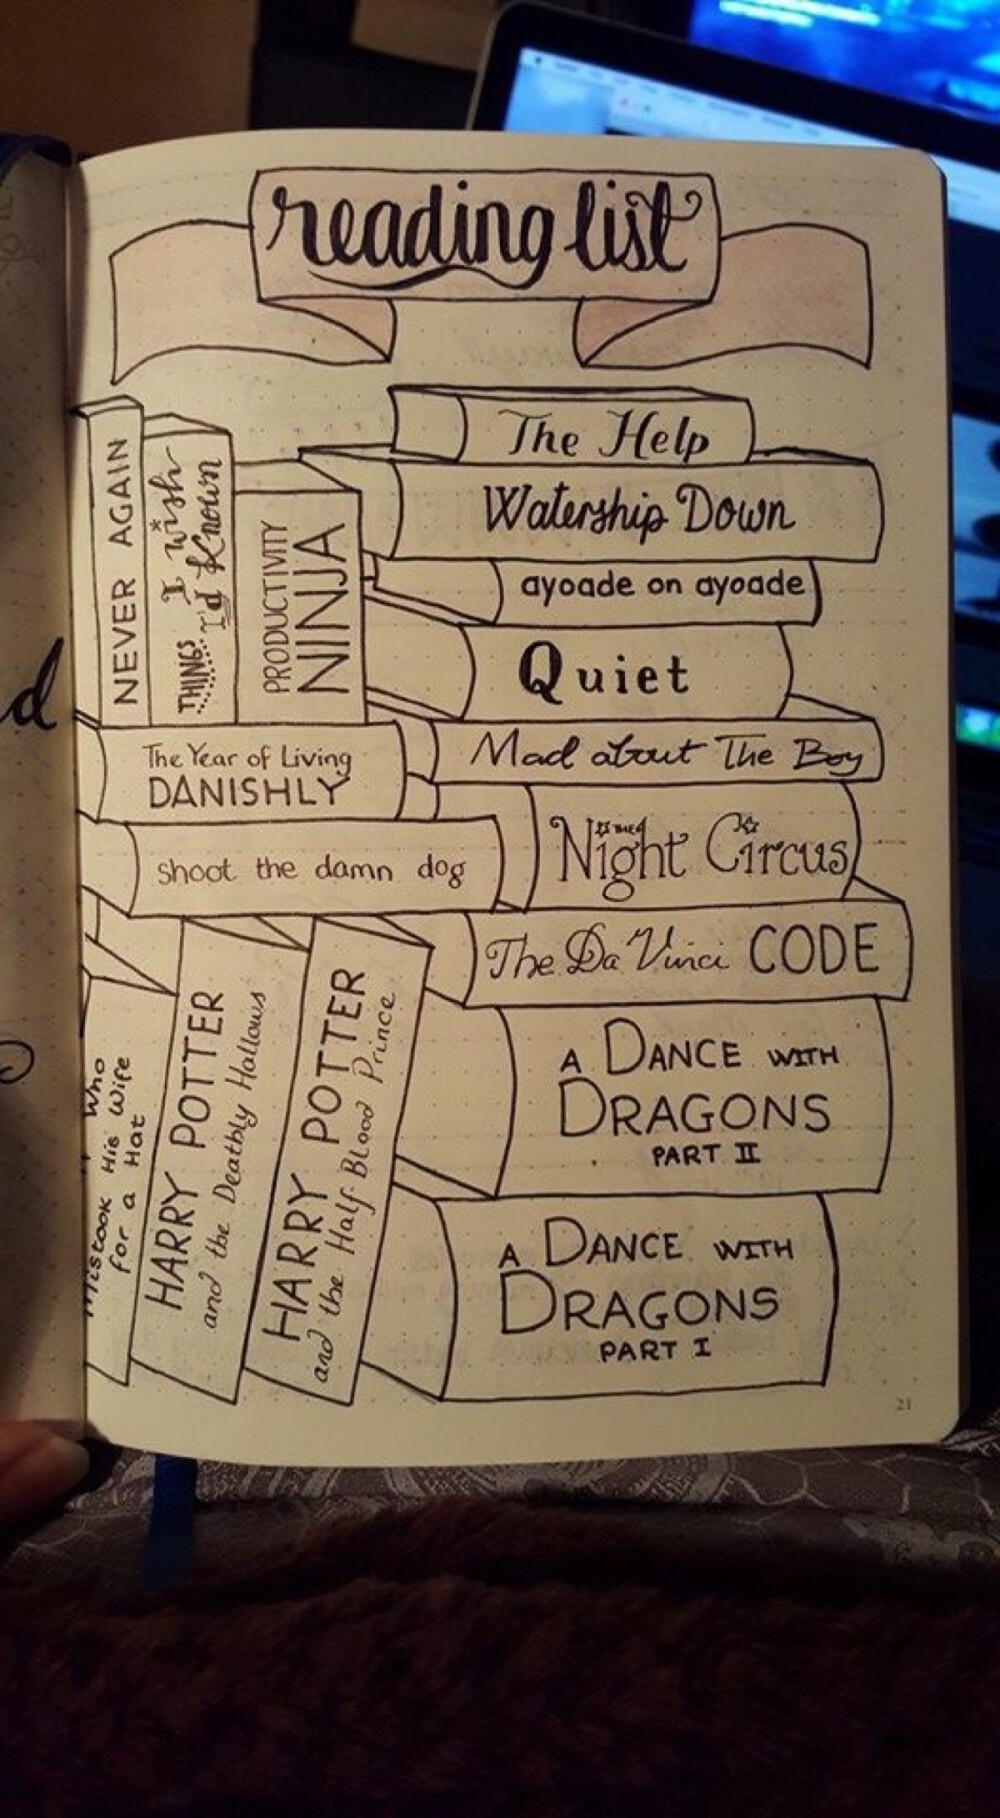 reading list
The Help
Watership Down
ayoade on ayoade
Quiet
Mad about The Boy
THE
Night Circus
The Da Vinci CODE
A DANCE WITH
DRAGONS
PART II
A DANCE WITH
DRAGONS
PART I
NEVER AGAIN
THINGS I wish
I'd Known
PRODUCTIVITY
NINJA
The Year of Living
DANISHLY
shoot the damn dog
Mistook His Wife
for a Hat
Who
HARRY POTTER
and the Deathly Hallows
HARRY POTTER
and the Half-Blood Prince
21
d